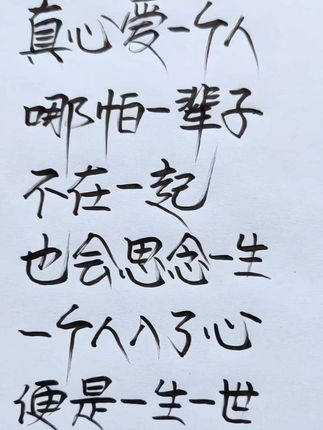 真心爱一个人
哪怕一辈子
不在一起
也会思念一生
一个人入了心
便是一生一世